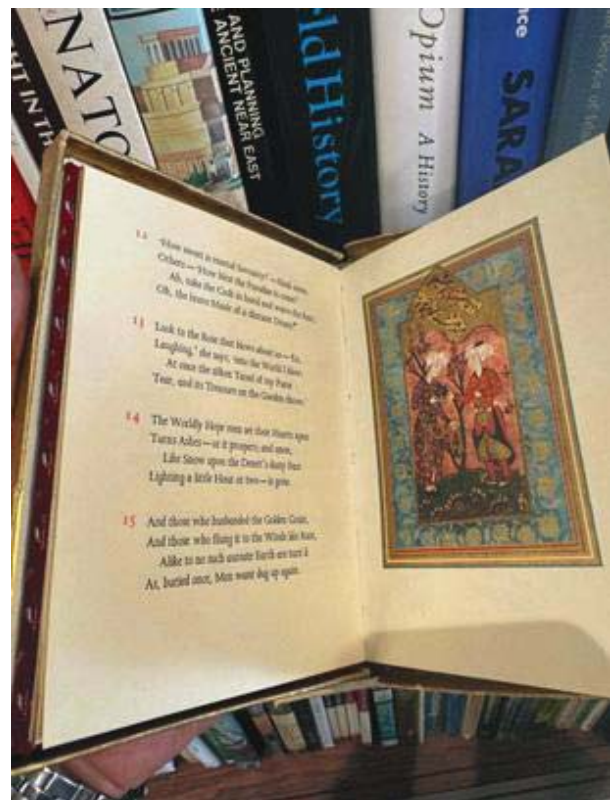 HT IN TH
ENATO
AND PLANNING
ANCIENT NEAR EAST
ld History
Opium A History
nce
SARA
12 'How sweet is mortal Sovranty!'—think some:
Others—'How blest the Paradise to come!'
Ah, take the Cash in hand and waive the Rest;
Oh, the brave Music of a distant Drum!
13 Look to the Rose that blows about us—'Lo,
Laughing,' she says, 'into the World I blow:
At once the silken Tassel of my Purse
Tear, and its Treasure on the Garden throw.'
14 The Worldly Hope men set their Hearts upon
Turns Ashes—or it prospers; and anon,
Like Snow upon the Desert's dusty Face
Lighting a little Hour or two—is gone.
15 And those who husbanded the Golden Grain,
And those who flung it to the Winds like Rain,
Alike to no such aureate Earth are turn'd
As, buried once, Men want dug up again.